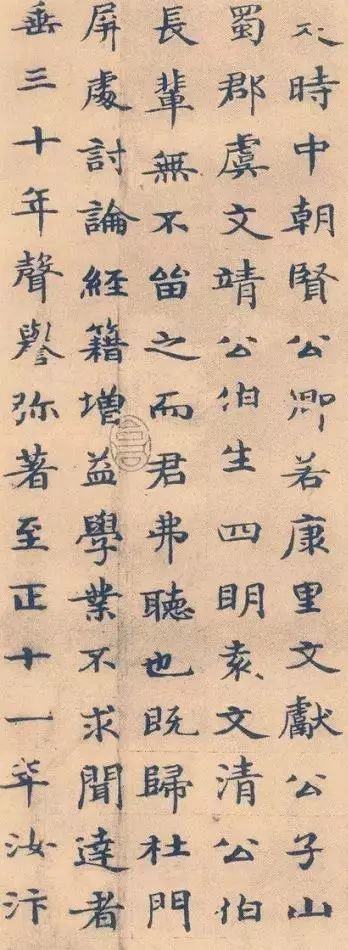 時中朝賢公卿若康里文獻公子山
蜀郡虞文靖公伯生四明袁文清公伯
長輩無不留之而君弗聽也既歸杜門
屏處討論経籍增益學業不求聞達者
垂三十年聲譽弥著至正十一年汝汴